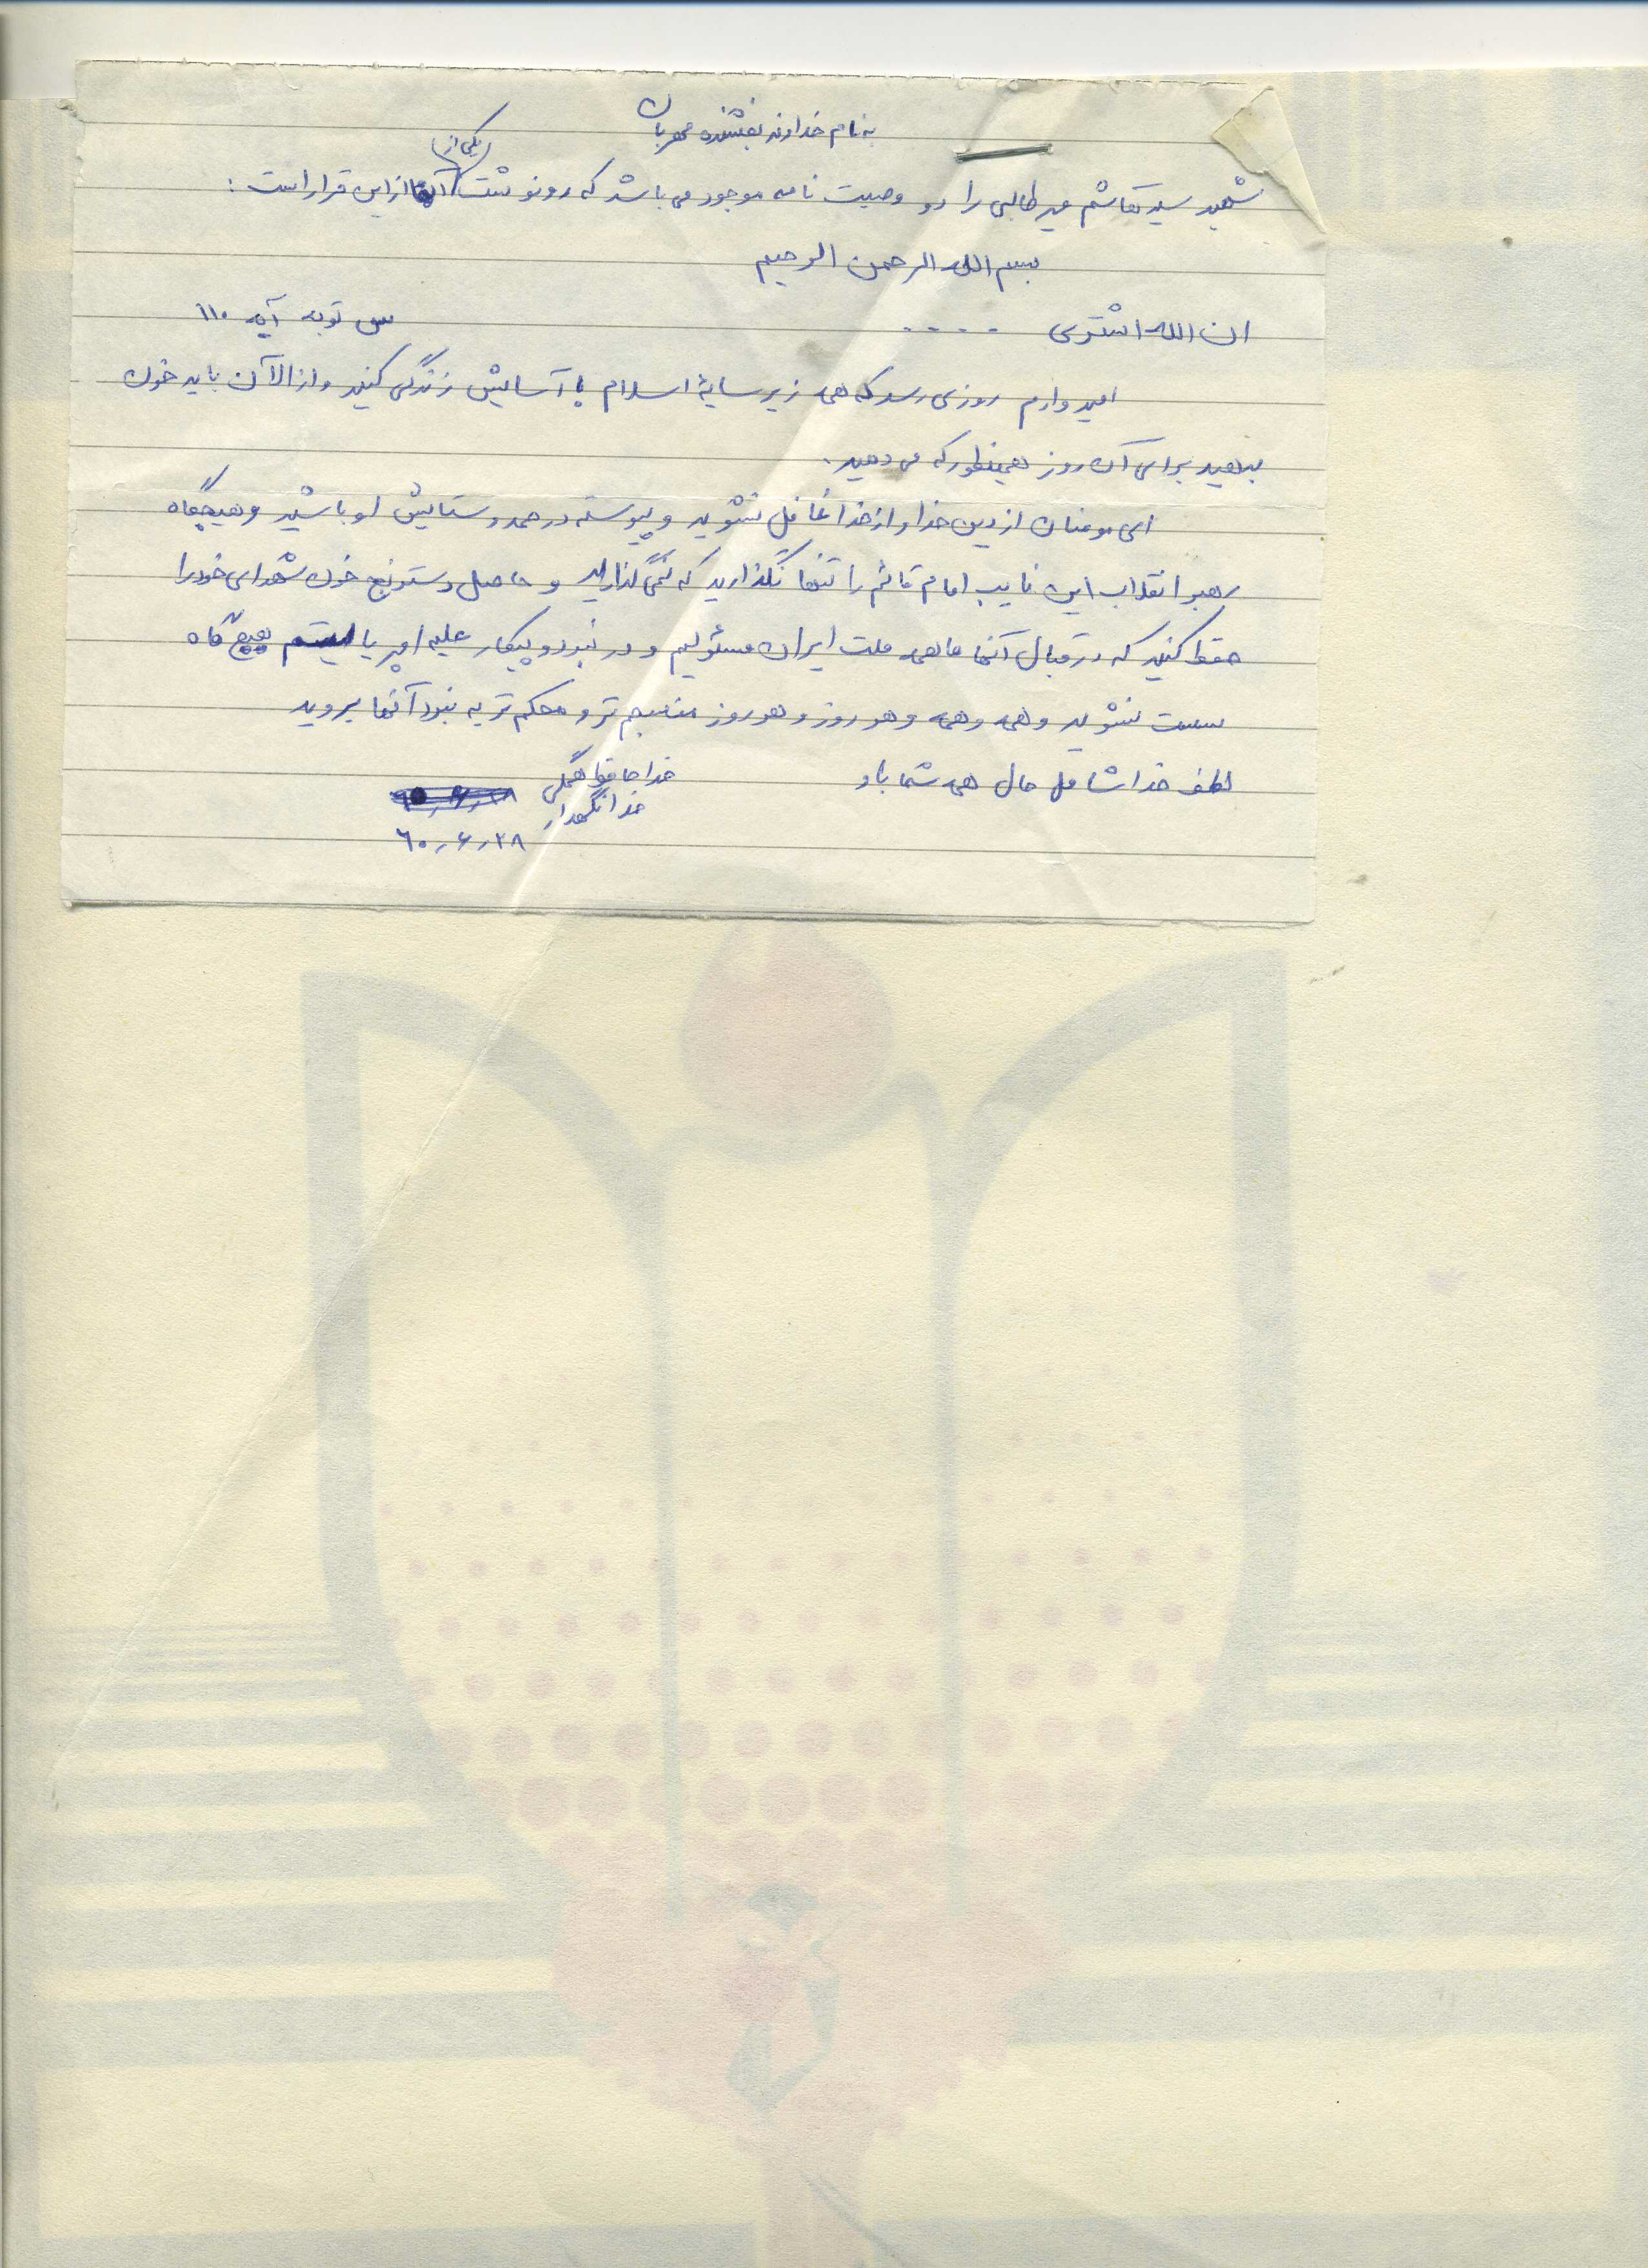 به نام خداوند بخشنده مهربان
شهید سید قاسم میر طالبی را دو وصیت نامه موجود می باشد که رونوشت (یکی از) آنها از این قرار است :
بسم الله الرحمن الرحیم
ان الله اشتری - - - - س توبه آیه ۱۱۰
امیدوارم روزی رسد که همه زیر سایهٔ اسلام با آسایش زندگی کنید و از الآن باید خون
بدهید برای آن روز همینطور که می دهید .
ای مومنان از دین خدا و از خدا غافل نشوید و پیوسته در حمد و ستایش او باشید و هیچگاه
رهبر انقلاب این نایب امام قائم را تنها نگذارید که نمی گذارید و حاصل دسترنج خون شهدای خود را
حفظ کنید که در قبال آنها ما همه ملت ایران مسئولیم و در نبرد و پیکار علیه امپریالیسم هیچ گاه
سست نشوید و همه و همه و هر روز و هر روز منسجم تر و محکم تر به نبرد آنها بروید
لطف خدا شامل حال همه شما باد خدا حافظ همگی
خدا نگهدار
۶۰٫۶٫۲۸